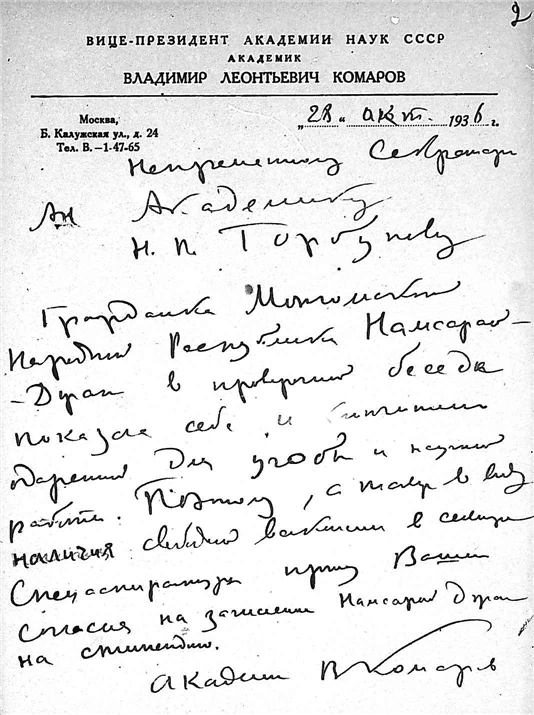 2
ВИЦЕ-ПРЕЗИДЕНТ АКАДЕМИИ НАУК СССР
АКАДЕМИК
ВЛАДИМИР ЛЕОНТЬЕВИЧ КОМАРОВ
Москва,
Б. Калужская ул., д. 24
Тел. В.—1-47-65
„28" окт. 1936 г.
Непременному Секретарю
Ан Академику
Н. П. Горбунову
Гражданка Монгольской
Народной Республики Намсарай-
-Дуран в проверочной беседе
показала себя
одаренной для учобы и научной
работы. Поэтому, а также в виду
наличия свободной вакансии в секторе
Спецаспирантуры прошу Вашего
согласия на зачисление Намсарай Дуран
на стипендию.
Академик В Комаров